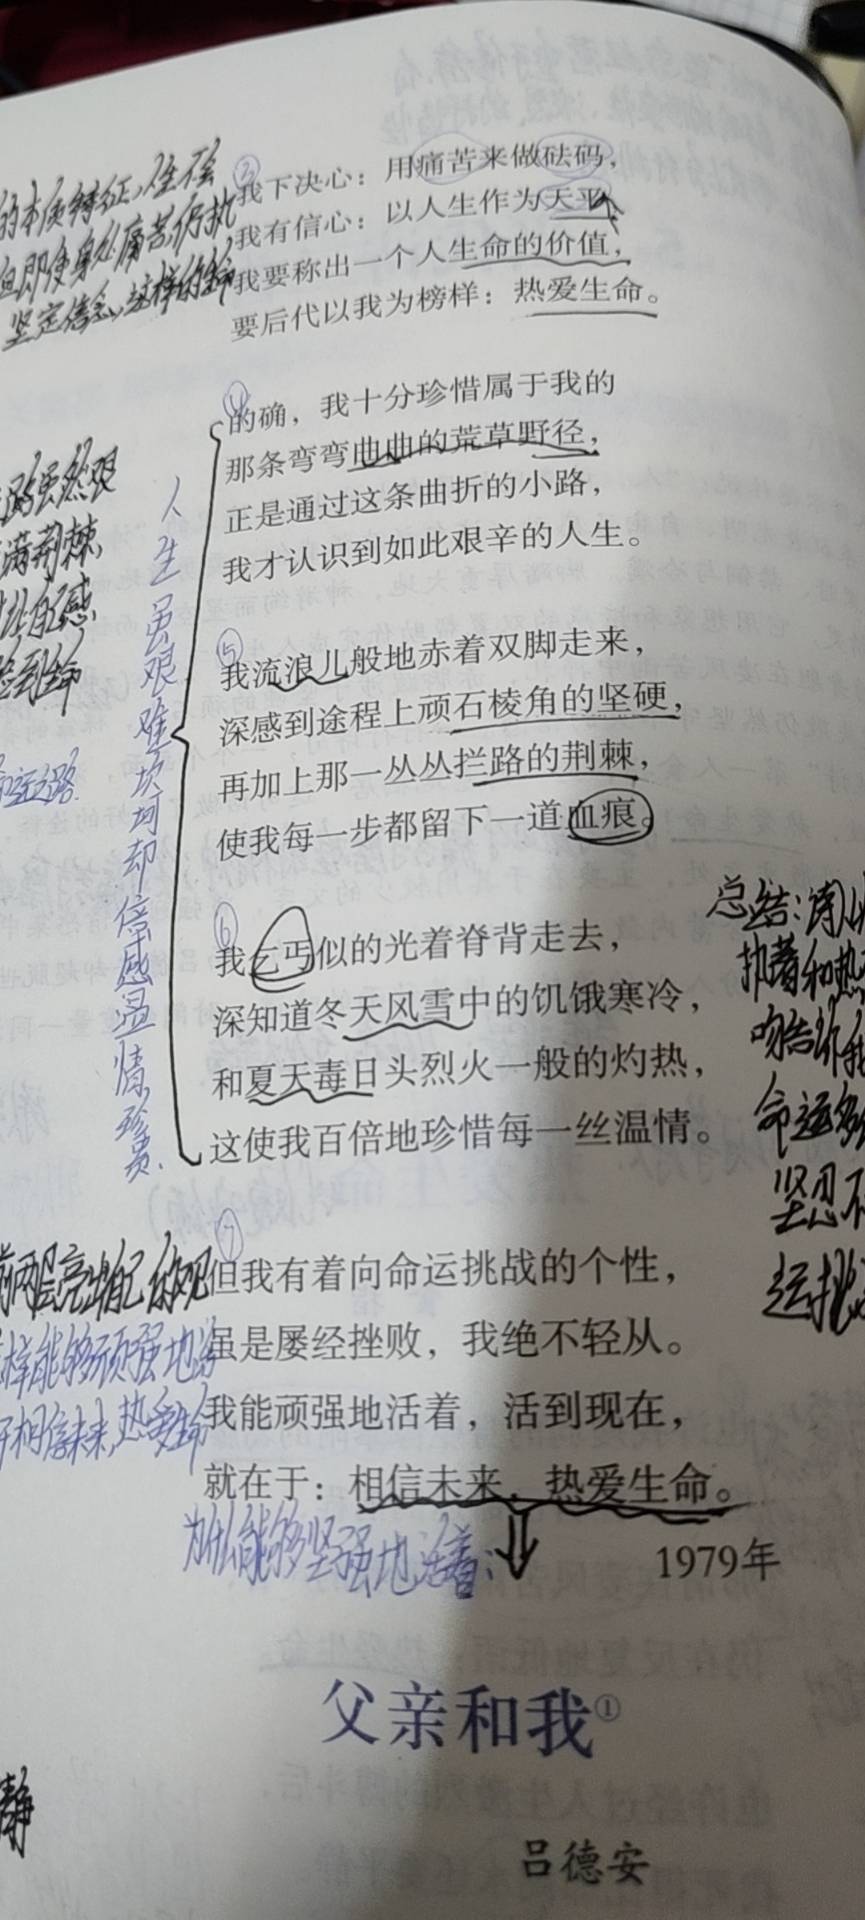 ③
我下决心：用痛苦来做砝码，
我有信心：以人生作为天平，
我要称出一个人生命的价值，
要后代以我为榜样：热爱生命。
的本质特征，
但即使身处痛苦仍执
坚定信念，这样的
④
的确，我十分珍惜属于我的
那条弯弯曲曲的荒草野径，
正是通过这条曲折的小路，
我才认识到如此艰辛的人生。
路虽然艰
满荆棘
人生虽艰难坎坷却倍感温情，珍贵。
⑤
我流浪儿般地赤着双脚走来，
深感到途程上顽石棱角的坚硬，
再加上那一丛丛拦路的荆棘，
使我每一步都留下一道血痕。
命运之路
⑥
我乞丐似的光着脊背走去，
深知道冬天风雪中的饥饿寒冷，
和夏天毒日头烈火一般的灼热，
这使我百倍地珍惜每一丝温情。
总结：诗
执着和热
吻告诉我
命运多
坚忍不
运挑
⑦
但我有着向命运挑战的个性，
虽是屡经挫败，我绝不轻从。
我能顽强地活着，活到现在，
就在于：相信未来，热爱生命。
前两层亮出自己的观
样能够顽强地
相信未来，热爱生命
为什么能够坚强地活着：
1979年
父亲和我①
静
吕德安